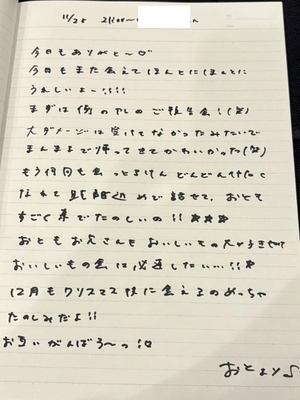 11/25 21:00〜
今日もありがと〜♡
今日もまた会えてほんとにほんとに
うれしいよー!!!!
まずは例のアレのご報告会!(笑)
大ダメージは受けてなかったみたいで
まんまるで帰ってきてかわいかった(笑)
もう何回も会っとるけん どんどん
なれて 話せて、おとも
すごく楽でたのしいの!!☆☆☆
おともお兄さんもおいしいもの大好きやけん
おいしいもの会に必ず したい…!!☆
12月もクリスマス後に会えるのめっちゃ
たのしみだよ!!
お互いがんばろ〜っ!♡
おとより